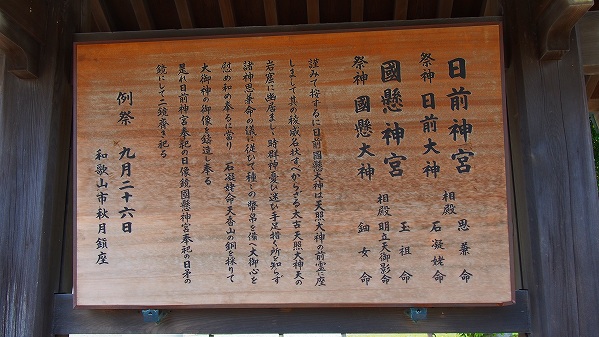 日前神宮
祭神 日前大神
相殿 思兼命
石凝姥命
國懸神宮
祭神 國懸大神
相殿 玉祖命
明立天御影命
鈿女命
謹みて按するに日前國懸大神は天照大神の前霊に座
しまして其の稜威名状すへからさる太古天照大神天の
岩窟に幽居ましゝ時群神憂ひ迷ひ手足措く所を知らす
諸神思兼命の議に従ひて種々の幣帛を備へ大御心を
慰め和め奉るに當り 石凝姥命天香山の銅を採りて
大御神の御像を鋳造し奉る
是れ日前神宮奉祀の日像鏡國懸神宮奉祀の日矛の
鏡にして二鏡齊き祀る
例祭 九月二十六日
和歌山市秋月鎮座